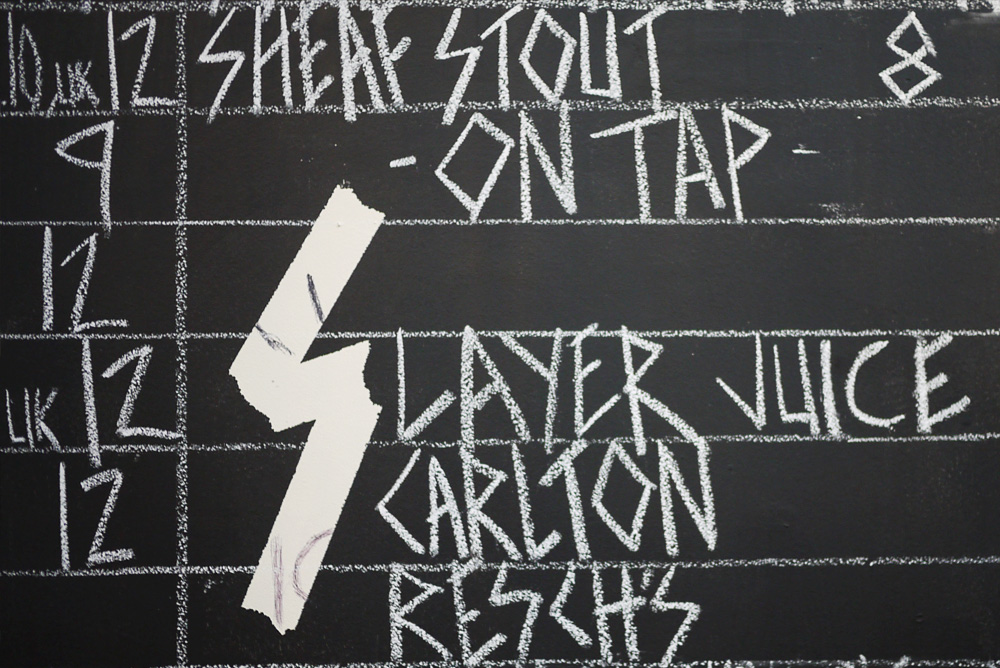 10 UK 12 SHEAF STOUT 8
9 -ON TAP-
12
UK 12 LAYER JUICE
12 CARLTON
RESCH'S